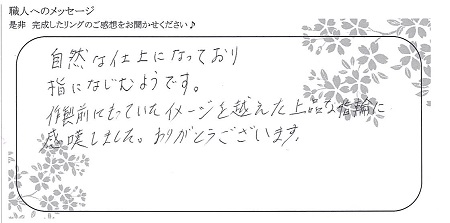 職人へのメッセージ
是非 完成したリングのご感想をお聞かせください♪
自然な仕上になっており
指になじむようです。
作製前にもっていたイメージを越えた上品な指輪に
感嘆しました。ありがとうございます。